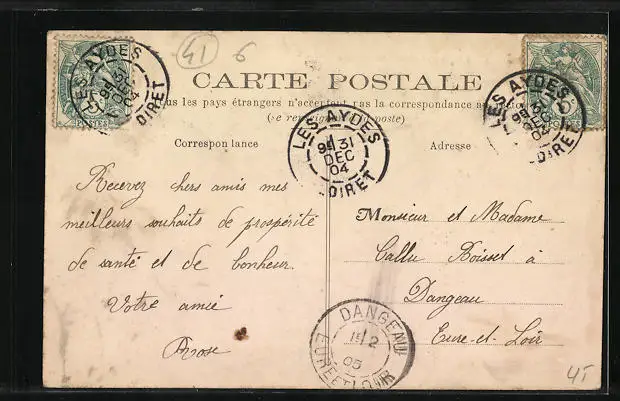 41 6
CARTE POSTALE
us les pays étrangers n'acceptent pas la correspondance au
(se re au poste)
Correspon lance
Adresse
LES AYDES
31
DEC
04
LOIRET
POSTES
LES AYDES
9E 31
DEC
04
LOIRET
LES AYDES
DEC
04
LOIRET
Recevez chers amis mes
meilleurs souhaits de prospérité
de santé et de bonheur.
Votre amie
Rose
Monsieur et Madame
Callu Boisset à
Dangeau
Eure-et-Loir
DANGEAU
2
05
EURE ET LOIR
45